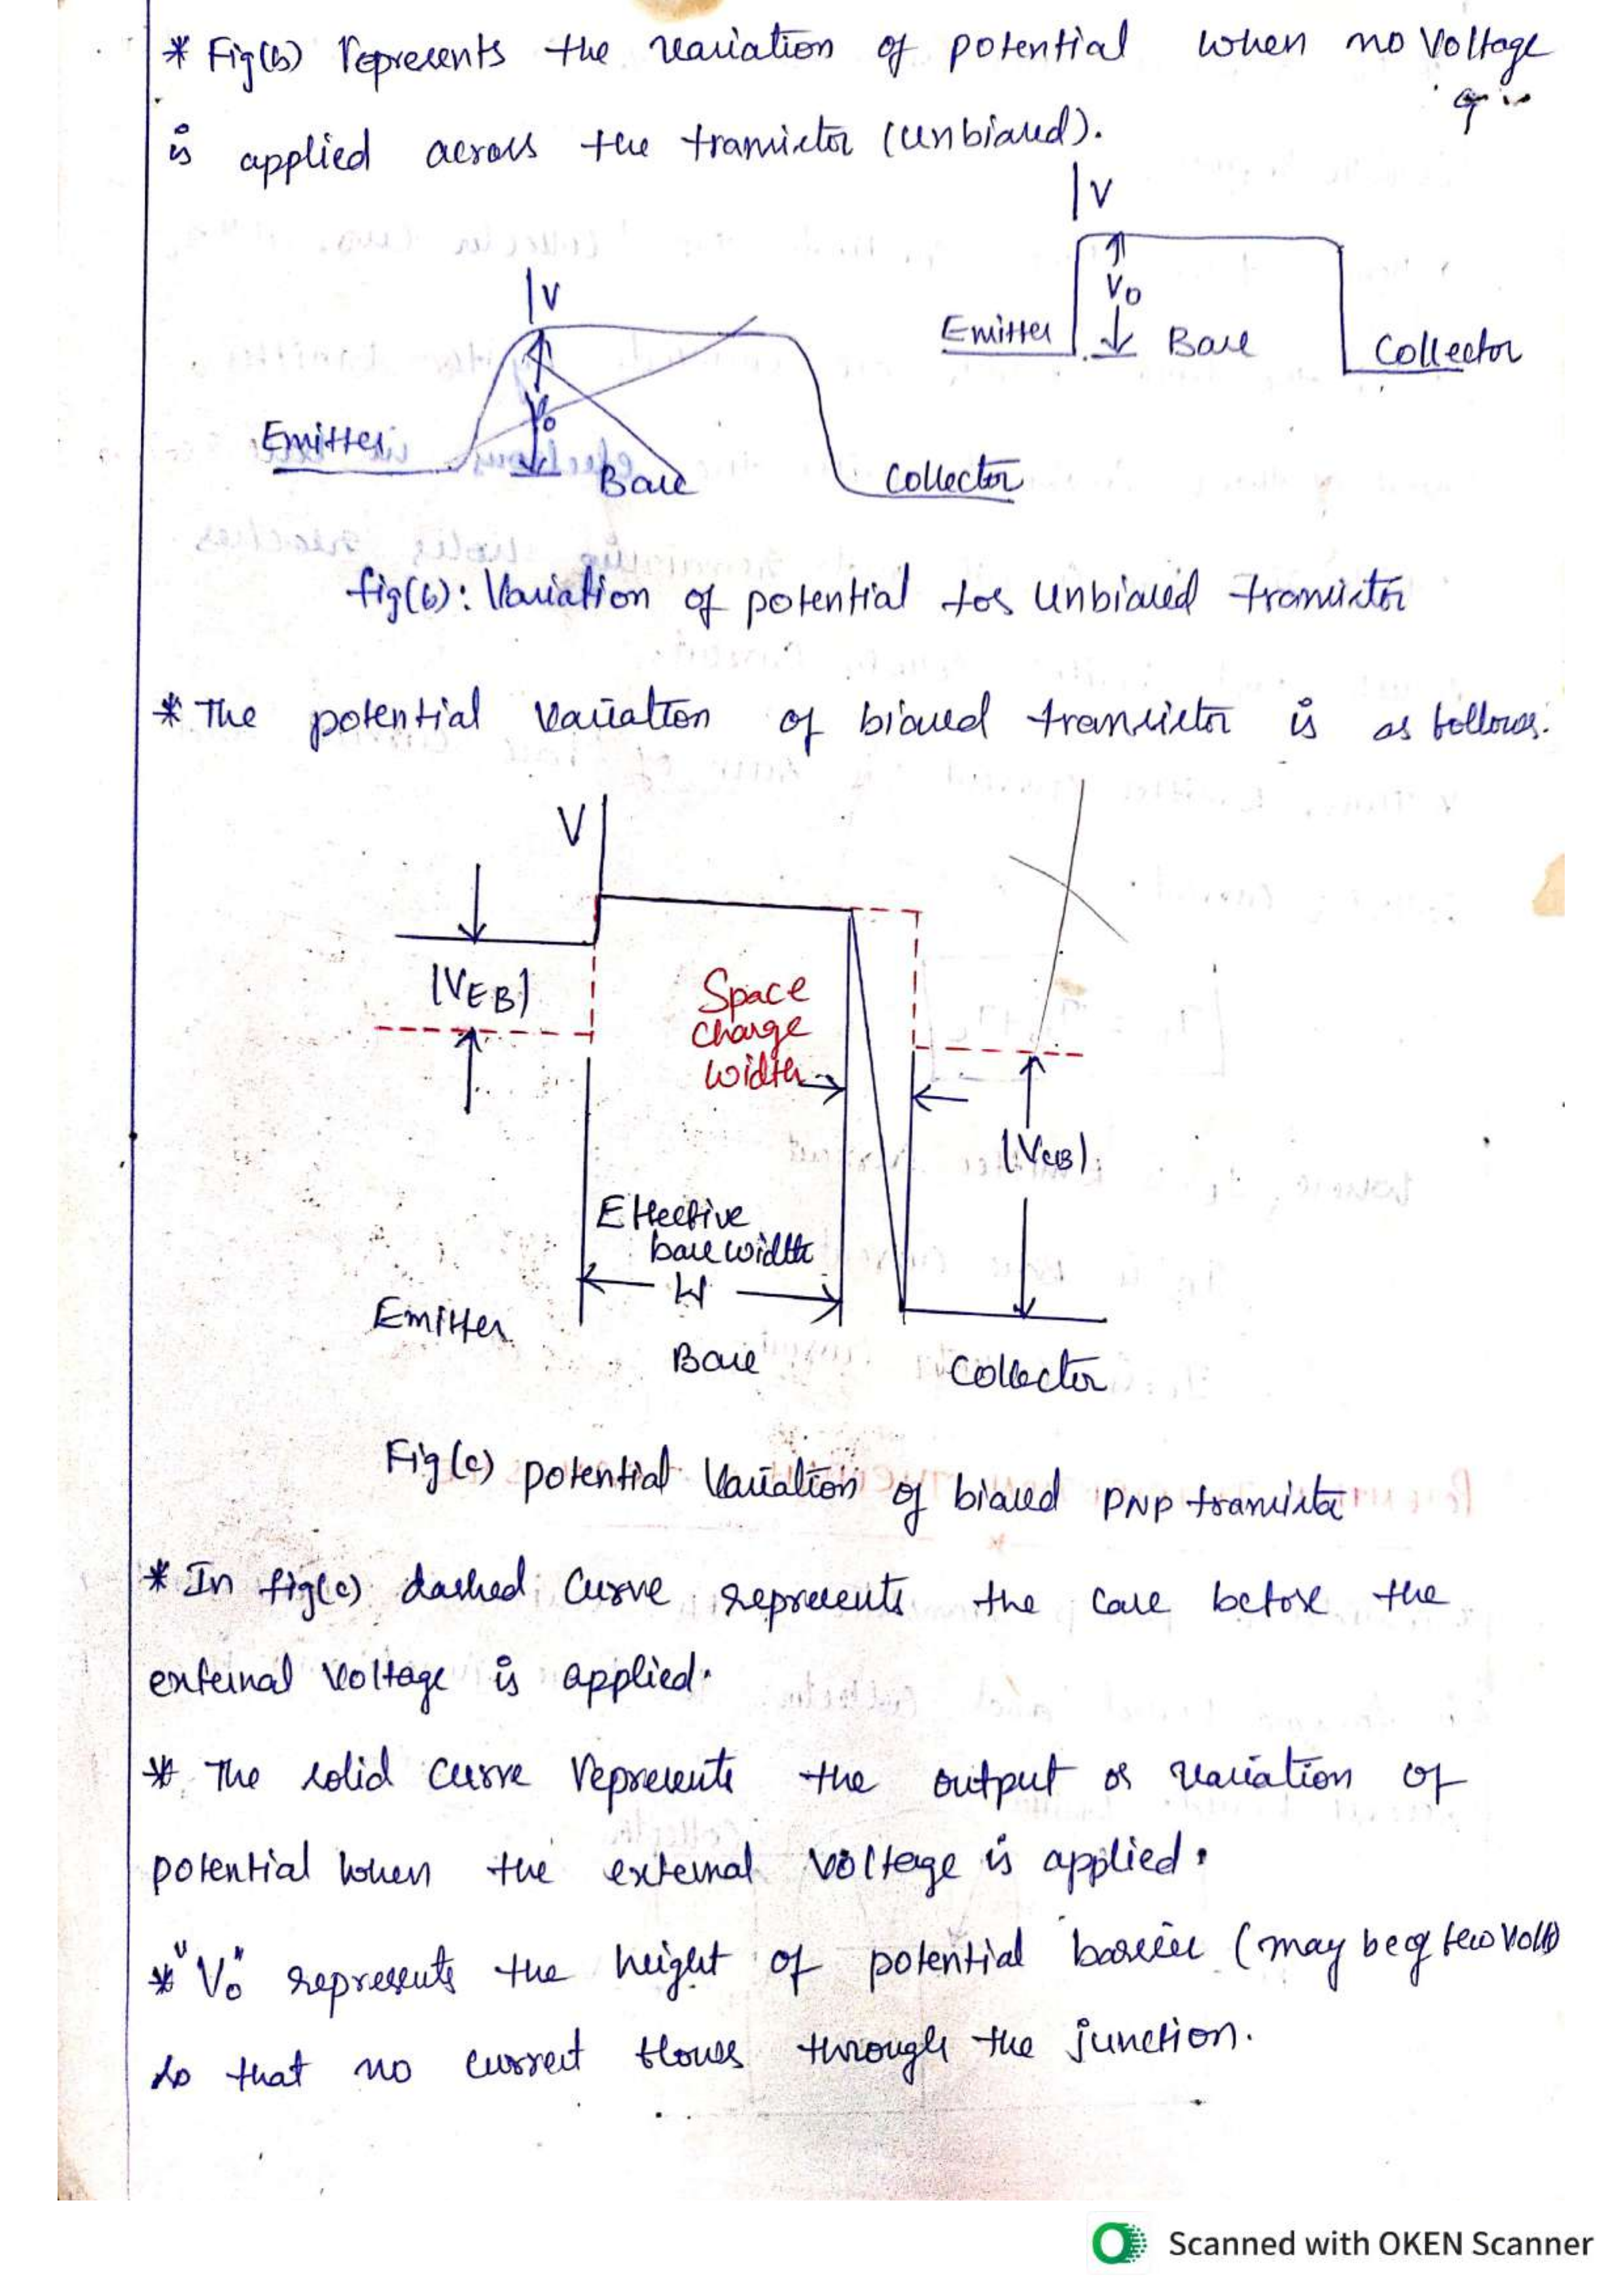 * Fig(b) represents the variation of potential when no voltage
is applied across the transistor (unbiased).
V
V
V0
Emitter
Base
Collector
V0
Emitter
Base
Collector
fig(b): Variation of potential for Unbiased transistor
* The potential variation of biased transistor is as follows.
V
|VEB|
Space
charge
width
|VCB|
Effective
base width
W
Emitter
Base
Collector
Fig(c) potential variation of biased PNP transistor
* In fig(c) dashed curve represents the case before the
external voltage is applied.
* The solid curve represents the output or variation of
potential when the external voltage is applied.
* "V0" represents the height of potential barrier (may be of few volts)
so that no current flows through the junction.
Scanned with OKEN Scanner